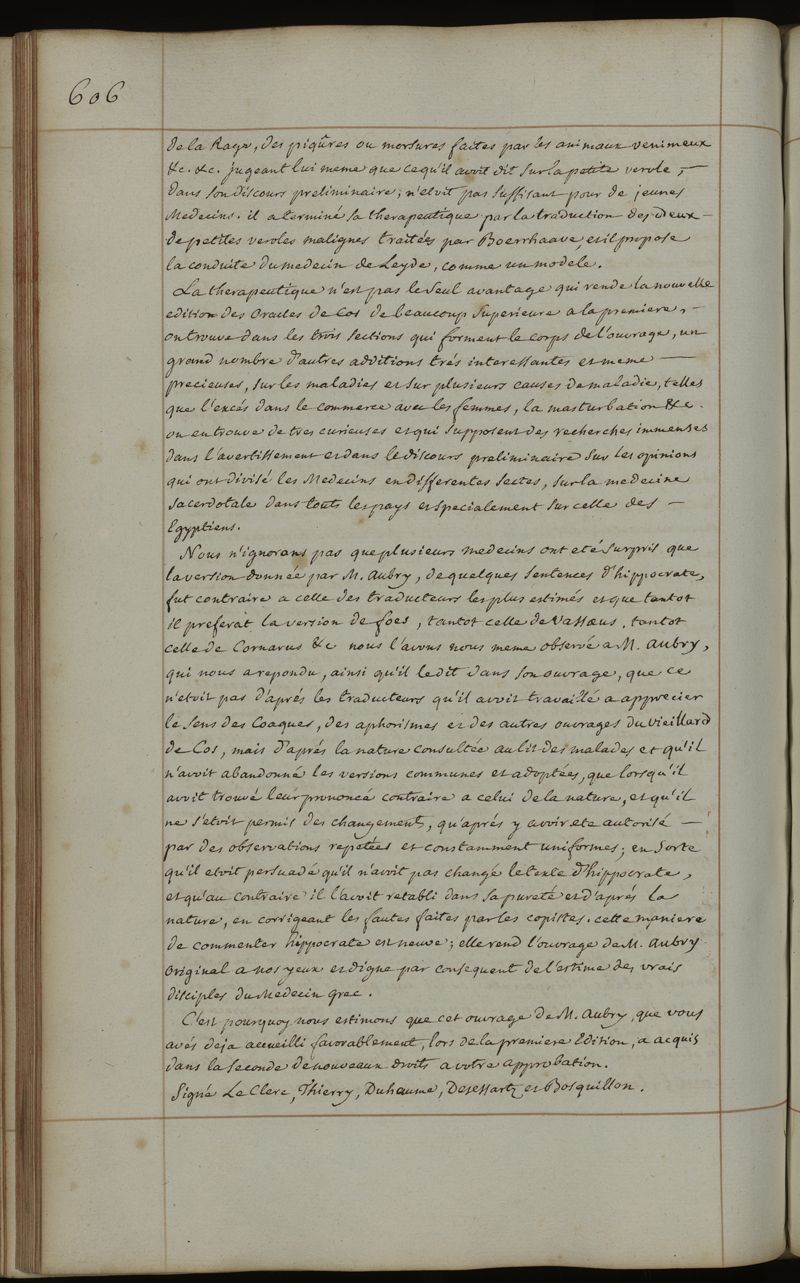 606
de la Rage, des piqûres ou morsures faites par les animaux venimeux
&c. &c. jugeant lui meme que ce qu'il avoit dit sur la petite verole, —
dans son discours preliminaire; n'etoit pas suffisant pour de jeunes
Medecins. il a terminé sa therapeutique par la traduction des deux —
de petites veroles malignes traitées par Boerrhaave, et il propose
la conduite du medecin de Leyde, comme un modele.
La therapeutique n'est pas le seul avantage qui rende la nouvelle
edition des Oracles de Cos de beaucoup superieure a la premiere, —
on trouve dans les trois sections qui forment le corps de l'ouvrage, un
grand nombre d'autres additions trés interessantes et meme —
precieuses, sur les maladies et sur plusieurs causes de maladie, telles
que l'excés dans le commerce avec les femmes, la masturbation &c.
on en trouve de tres curieuses et qui supposent des recherches immenses
dans l'avertissement et dans le discours preliminaire sur les opinions
qui ont divisé les Medecins en differentes sectes, sur la medecine
sacerdotale dans touts les pays et specialement sur celle des —
Egyptiens.
Nous n'ignorons pas que plusieurs medecins ont eté surpris que
la version donnée par M. Aubry, de quelques sentences d'hippocrate,
fut contraire a celle des traducteurs les plus estimés et que tantot
il preferât la version de foes, tantot celle de Vassæus, tantot
celle de Cornarus &c nous l'avons nous meme observé a M. Aubry,
qui nous a repondu, ainsi qu'il le dit dans son ouvrage, que ce
n'etoit pas d'aprés les traducteurs qu'il avoit travaillé a apprecier
le sens des Coaques, des aphorismes et des autres ouvrages du vieillard
de Cos, mais d'aprés la nature consultée au lit des malades et qu'il
n'avoit abandonné les versions communes et adoptées, que lorsqu'il
avoit trouvé leur prononcé contraire a celui de la nature, et qu'il
ne s'etoit permis des changements, qu'aprés y avoir ete autorisé —
par des observations repetées et constamment uniformes; en sorte
qu'il etoit persuadé qu'il n'avoit pas changé le texte d'hippocrate,
et qu'au contraire il l'avoit retabli dans sa pureté et d'aprés la
nature, en corrigeant les fautes faites par les copistes. cette maniere
de commenter hippocrate est neuve; elle rend l'ouvrage de M. Aubry
original a nos yeux et digne par consequent de l'estime des vrais
disciples du Medecin grec.
C'est pourquoy nous estimons que cet ouvrage de M. Aubry, que vous
avés deja accueilli favorablement, lors de la premiere Edition, a acquis
dans la seconde de nouveaux droits a votre approbation.
Signé Le Clerc, Thierry, Duhaume, Desessartz et Bosquillon.